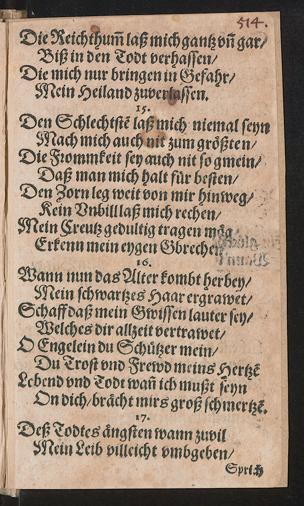 514.
Die Reichthum̃ laß mich gantz vñ gar/
Biß in den Todt verhassen/
Die mich nur bringen in Gefahr/
Mein Heiland zuverlassen.
15.
Den Schlechtstẽ laß mich niemal seyn
Mach mich auch nit zum größten/
Die From̃keit sey auch nit so gmein/
Daß man mich halt für besten/
Den Zorn leg weit von mir hinweg/
Kein Vnbill laß mich rechen/
Mein Creutz gedultig tragen mög/
Erkenn mein eygen Gbrechen
16.
Wann nun das Alter kombt herbey/
Mein schwartzes Haar ergrawet/
Schaff daß mein Gwissen lauter sey/
Welches dir allzeit vertrawet/
O Engelein du Schützer mein/
Du Trost vnd Frewd meins Hertzẽ
Lebend vnd Todt wañ ich mußt seyn
On dich/ brächt mirs groß schmertzẽ.
17.
Deß Todtes ängsten wann zuvil
Mein Leib villeicht vmbgeben/